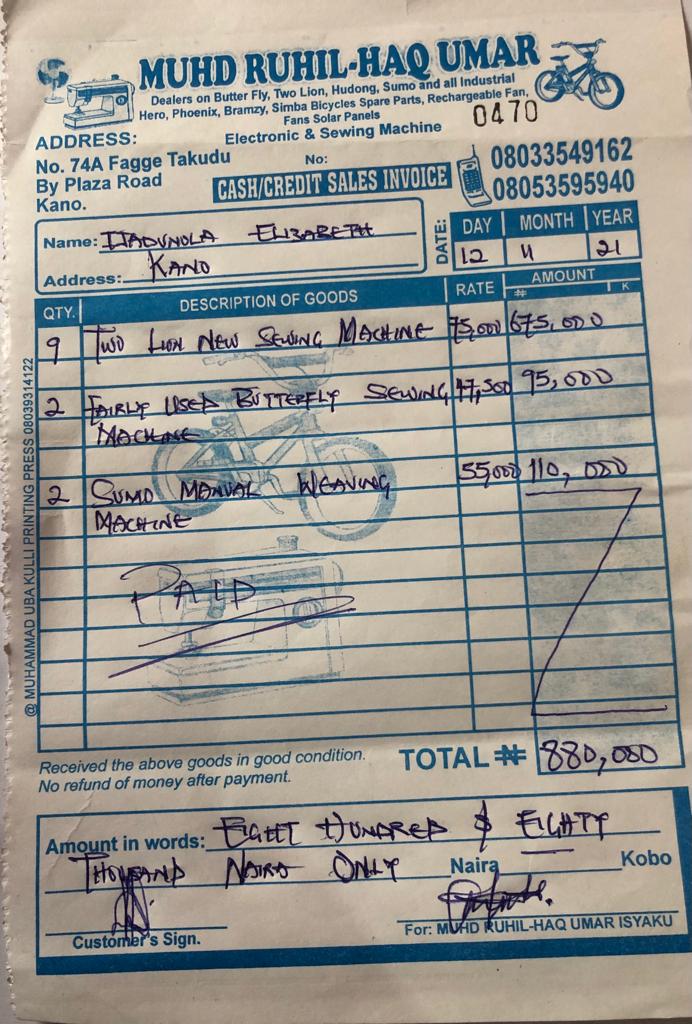 MUHD RUHIL-HAQ UMAR
Dealers on Butter Fly, Two Lion, Hudong, Sumo and all Industrial
Hero, Phoenix, Bramzy, Simba Bicycles Spare Parts, Rechargeable Fan,
Fans Solar Panels
Electronic & Sewing Machine
0470
ADDRESS:
No. 74A Fagge Takudu
By Plaza Road
Kano.
No:
CASH/CREDIT SALES INVOICE
08033549162
08053595940
Name: ITADUNOLA ELIZABETH
Address: KANO
DATE: DAY MONTH YEAR
12 11 21
QTY. DESCRIPTION OF GOODS RATE AMOUNT
₦ K
9 TWO LION NEW SEWING MACHINE 75,000 675,000
2 FAIRLY USED BUTTERFLY SEWING 47,500 95,000
MACHINE
2 SUMO MANUAL WEAVING 55,000 110,000
MACHINE
PAID
@ MUHAMMAD UBA KULLI PRINTING PRESS 08039314122
Received the above goods in good condition.
No refund of money after payment.
TOTAL ₦ 880,000
Amount in words: EIGHT HUNDRED & EIGHTY
THOUSAND NAIRA ONLY Naira Kobo
Customer's Sign.
For: MUHD RUHIL-HAQ UMAR ISYAKU